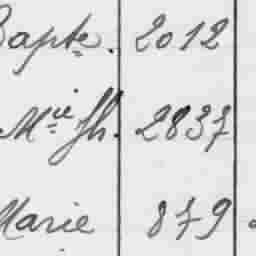 Bapte. 2012
Mie Jh. 2837
Marie 879